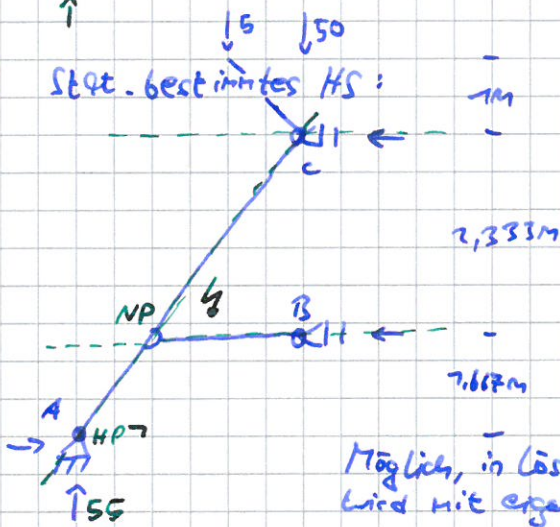 5 50
Stat. bestimmtes HS:
1M
C
2,333M
NP
B
1,667M
A
HP1
55
Möglich, in Lös
wird mit eige